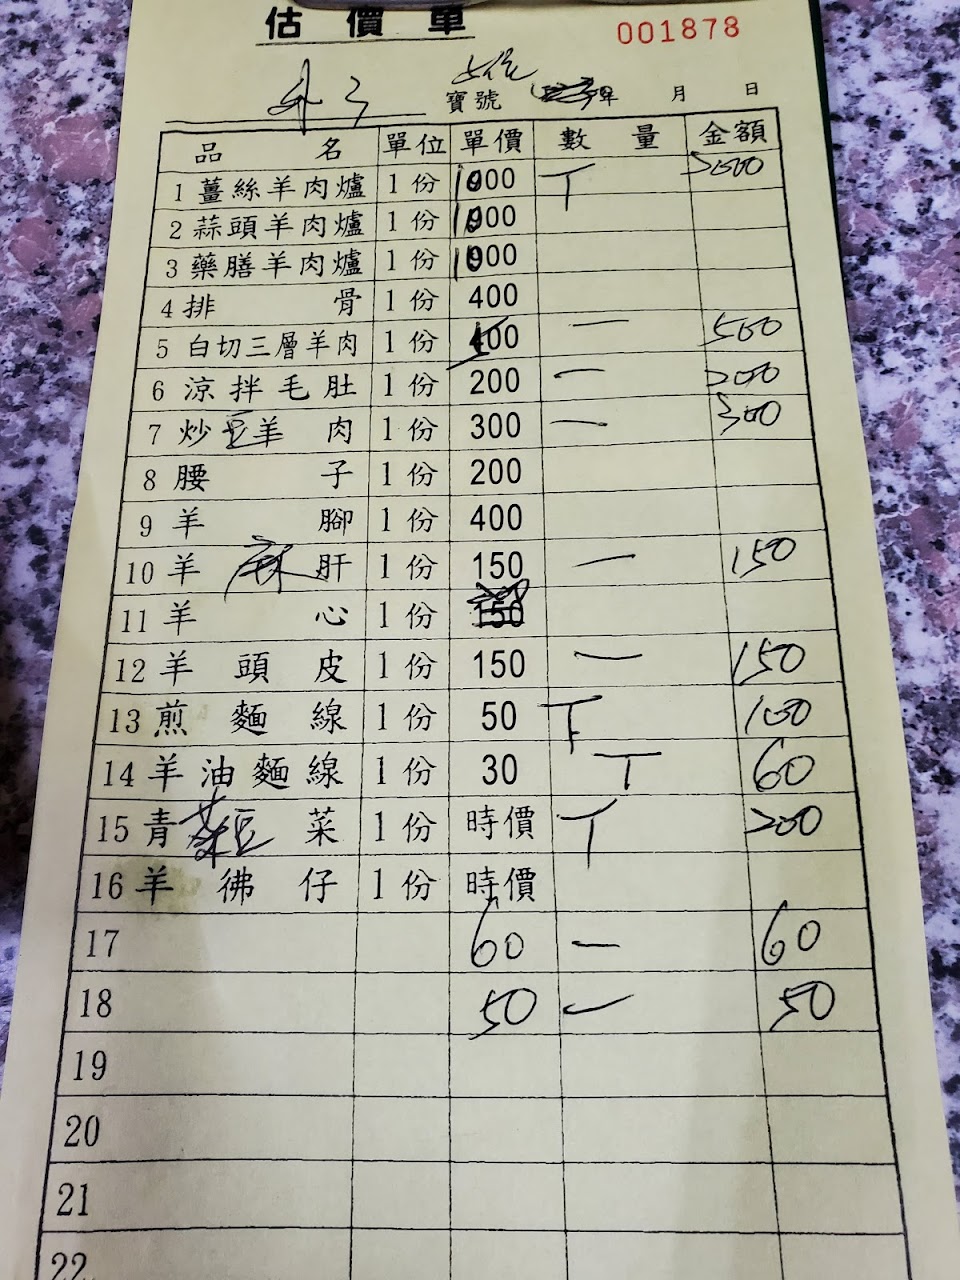 估價單
001878
寶號 年 月 日
品名 單位 單價 數量 金額
1 薑絲羊肉爐 1份 1000 丅 2000
2 蒜頭羊肉爐 1份 1000
3 藥膳羊肉爐 1份 1000
4 排骨 1份 400
5 白切三層羊肉 1份 500 一 500
6 涼拌毛肚 1份 200 一 200
7 炒羊肉 1份 300 一 300
8 腰子 1份 200
9 羊腳 1份 400
10 羊麻肝 1份 150 一 150
11 羊心 1份 150
12 羊頭皮 1份 150 一 150
13 煎麵線 1份 50 丅 100
14 羊油麵線 1份 30 丅 60
15 青菜 1份 時價 丅 200
16 羊彿仔 1份 時價
17 60 一 60
18 50 一 50
19
20
21
22